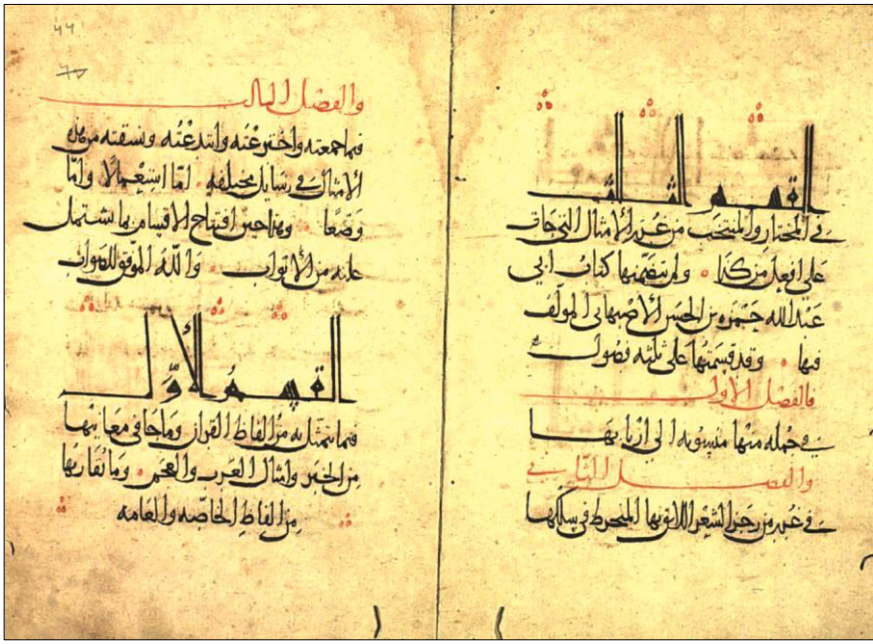 القسم الثالث
في المختار والمنتخب من غرر الأمثال التي جات
على افعل من كذا ولم يتضمنها كتاب ابي
عبد الله حمزه بن الحسن الأصبهاني المؤلف
فيها وقد قسمتها على ثلثه فصول
فالفصل الاول
في جمله منها منسوبه الى اربابها
والفصل الثاني
في غرر من الشعر اللائق بها المنخرط في سلكها
والفصل الثالث
فيما جمعته واخترعته وابتدعته ونسقته من هذه
الامثال في رسايل مختلفه اما استعمالًا وامّا
وضعًا وهذا حين افتتاح الاقسام بما تشتمل
عليه من الأبواب والله الموفق للصواب
القسم الأوّل
فيما يتمثل به من الفاظ القران وما جا في معانيها
من الخبر وامثال العرب والعجم وما يقاربها
من الفاظ الخاصّه والعامه